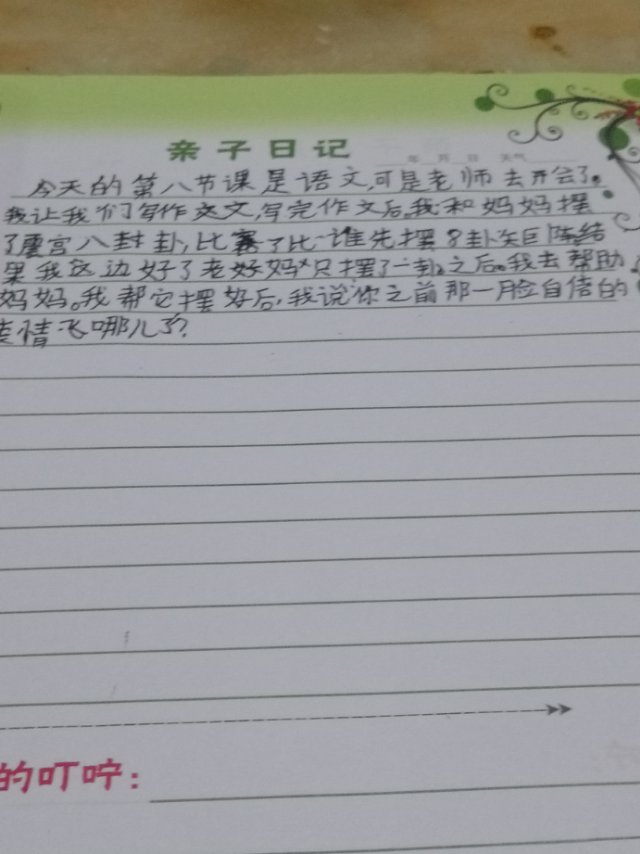 亲子日记
年 月 日 天气
今天的第八节课是语文,可是老师去开会了。
我让我们写作文文,写完作文后,我和妈妈摆
了宫八封卦,比赛了比谁先摆8卦矢巨阵结
果我这边好了老好妈妈只摆了一卦。之后。我去帮助
妈妈。我帮它摆好后,我说你之前那一脸自信的
表情飞哪儿了?
的叮咛: